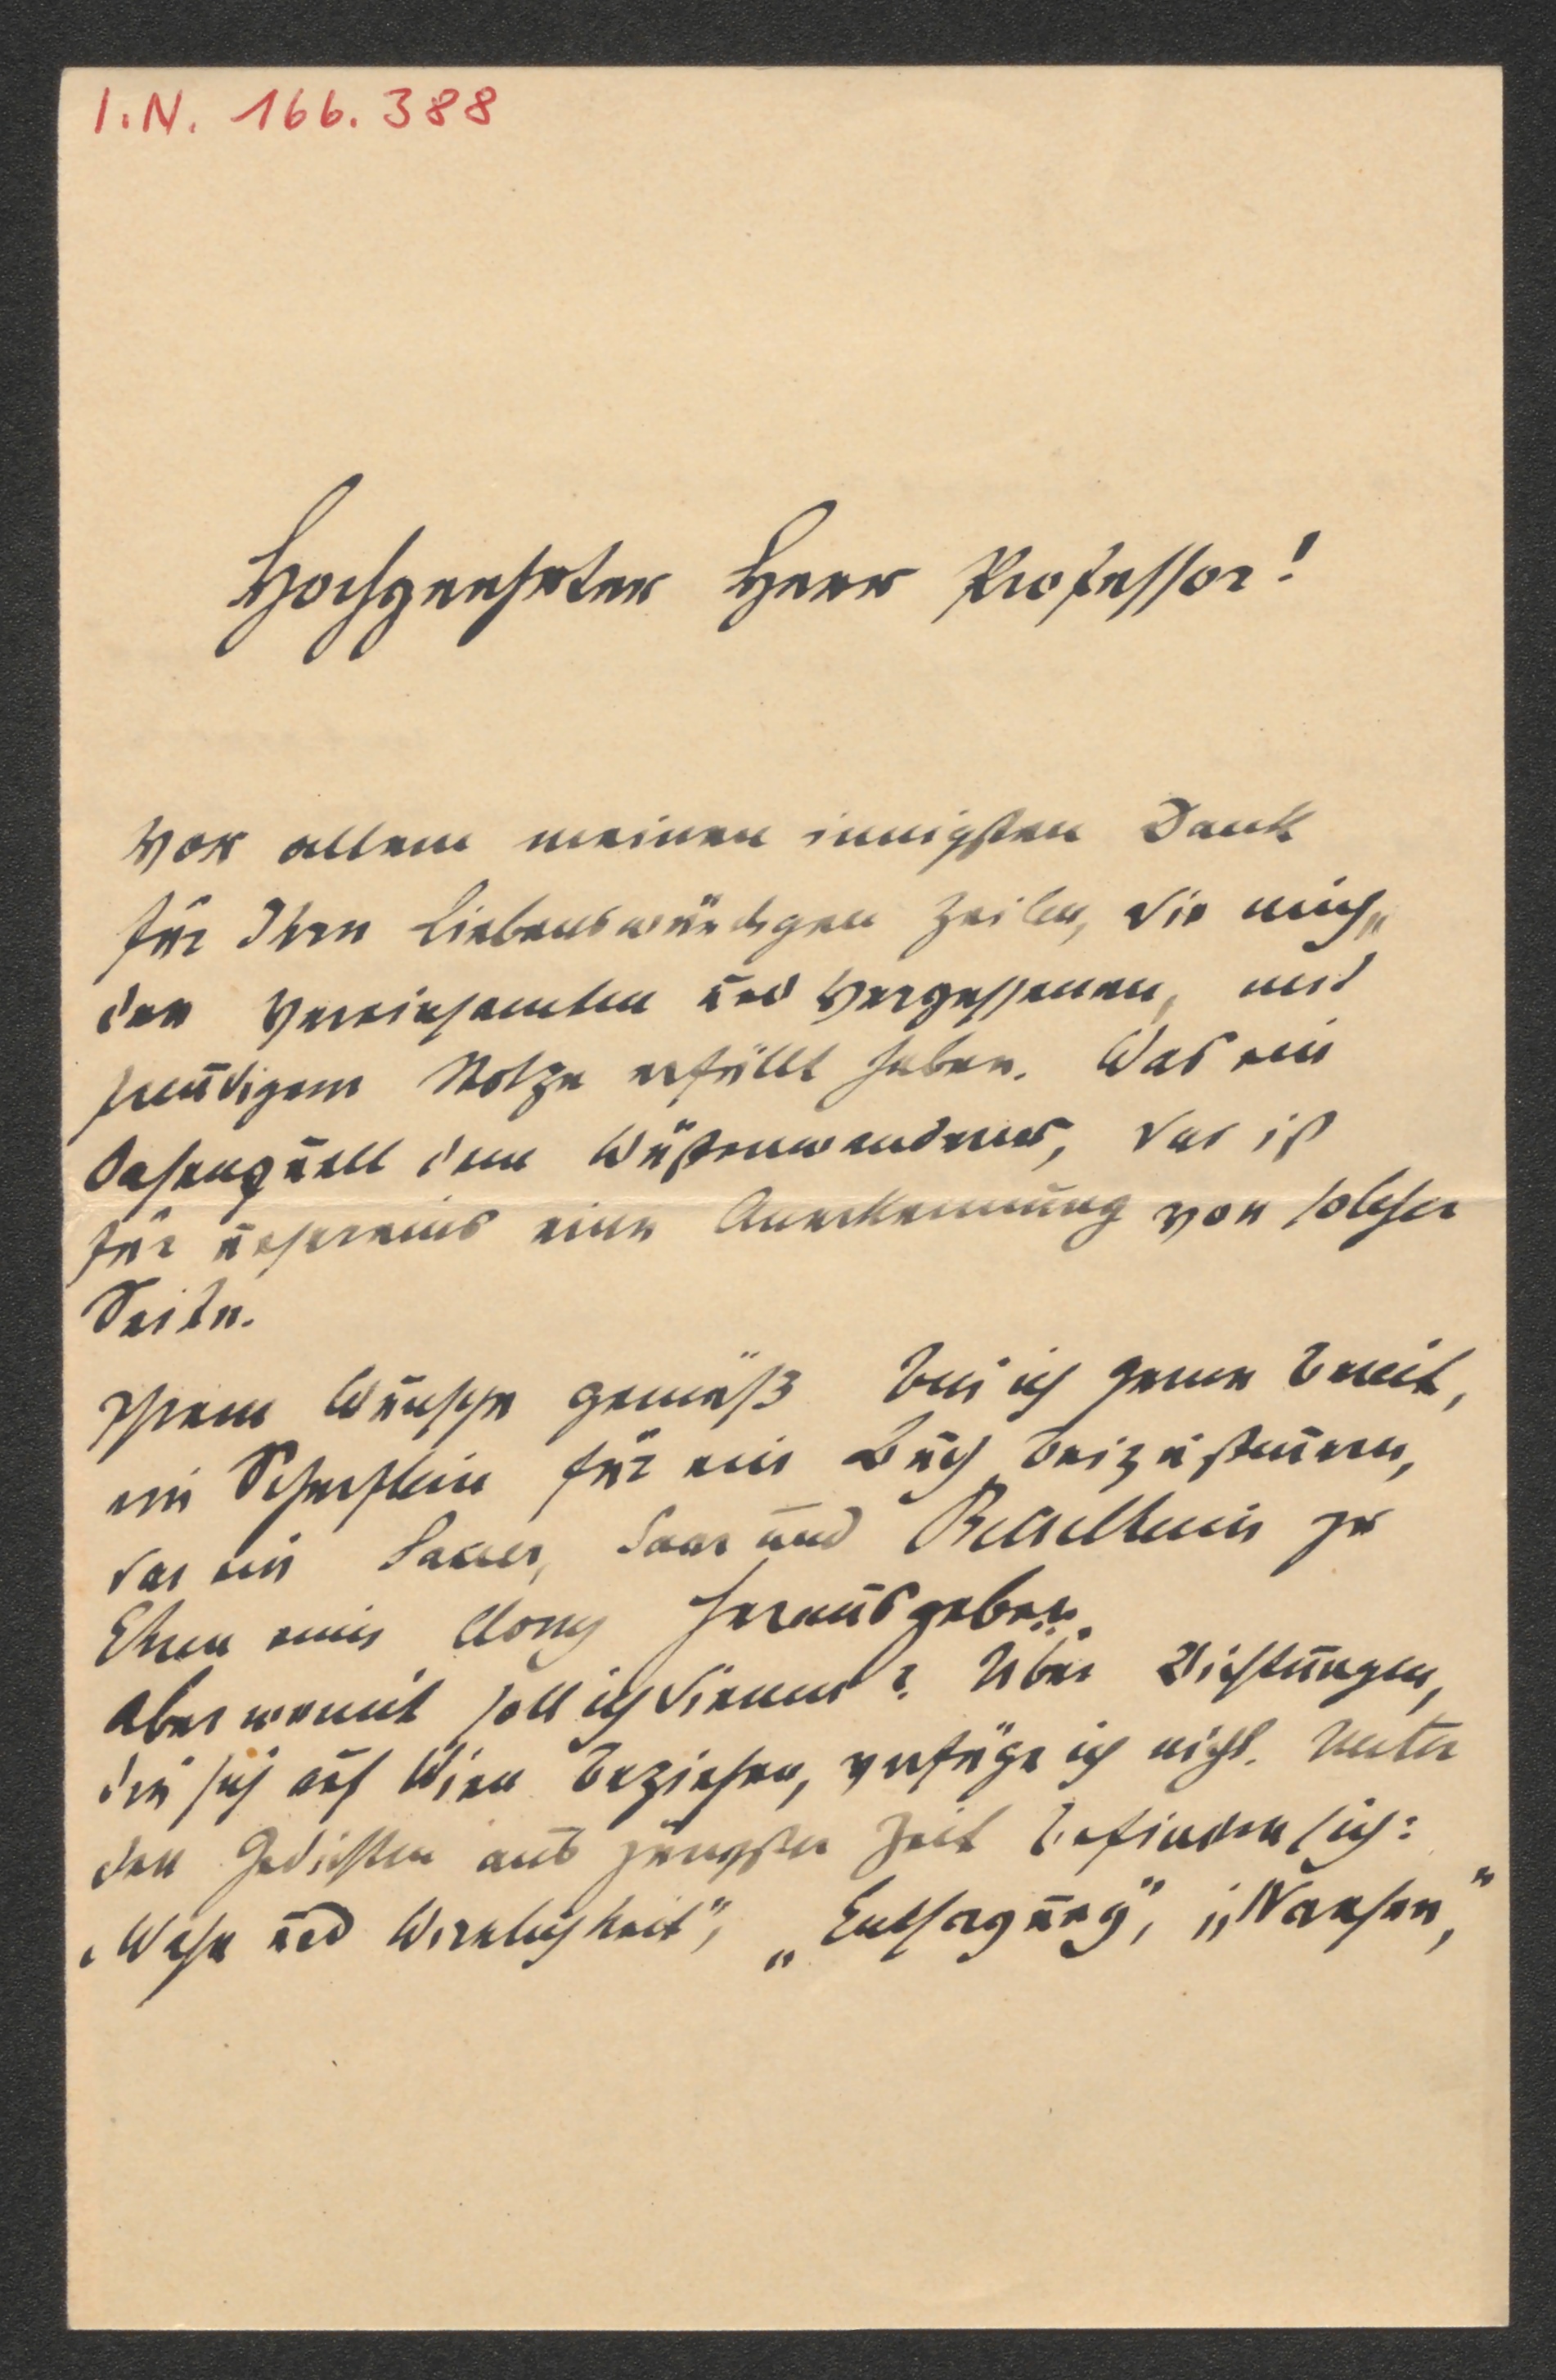 I.N. 166.388
Hochgeehrter Herr Professor!
Vor allem meinen innigsten Dank
für Ihre liebenswürdigen Zeilen, die mich,
den Vereinsamten und Vergessenen, mit
freudigem Stolze erfüllt haben. Was ein
Oasenquell dem Wüstenwanderer, das ist
für unsereins eine Anerkennung von solcher
Seite.
Ihrem Wunsche gemäß bin ich gerne bereit,
ein Scherflein für ein Buch beizusteuern,
das ein Sauer, Saar und zu
Ehren eines herausgeben.
Aber womit soll ich dienen? Über Dichtungen,
die sich auf Wien beziehen, verfüge ich nicht. Unter
den Gedichten aus jüngster Zeit befinden sich:
und Wirklichkeit", „Entsagung", „Nansen",